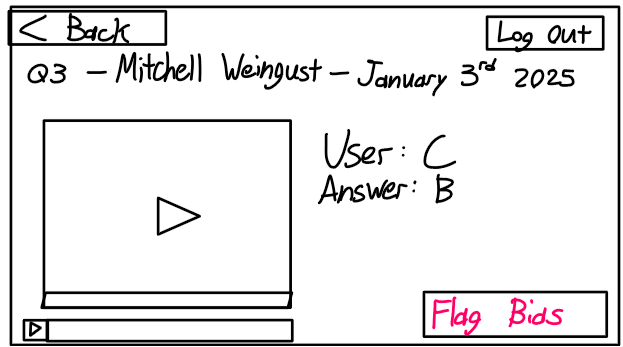 < Back
Log Out
Q3 - Mitchell Weingust - January 3rd 2025
User: C
Answer: B
Flag Bids